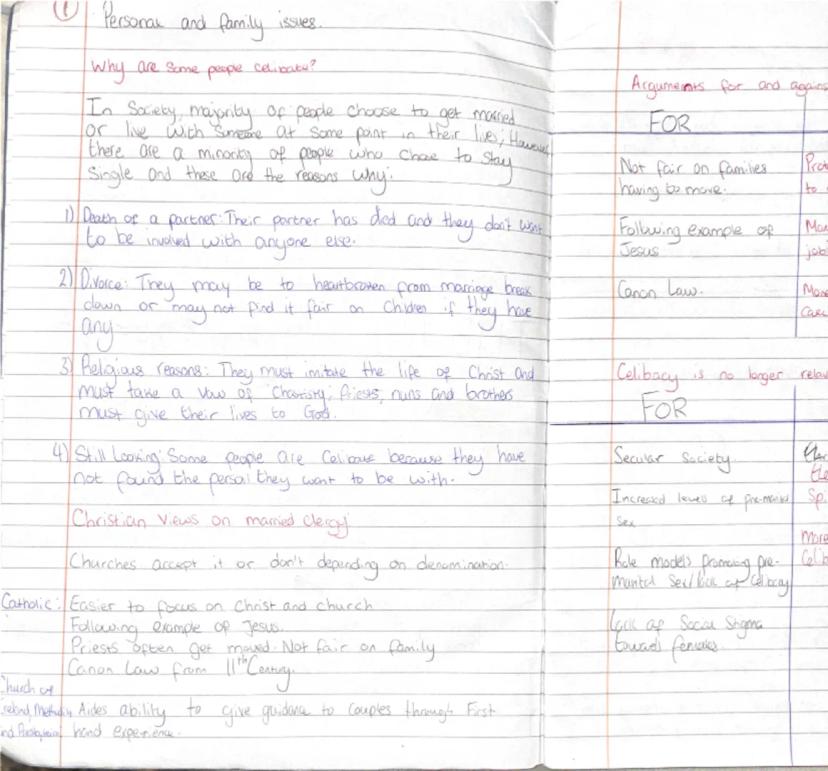 1
Personal and family issues.
Why are some people celibate?
In Society, majority of people choose to get married
or live with someone at some point in their lives; However
there are a minority of people who chose to stay
Single and these are the reasons why:
1) Death of a partner: Their partner has died and they don't want
to be involved with anyone else.
2) Divorce: They may be to heartbroken from marriage break
down or may not find it fair on Children if they have
any
3) Religious reasons: They must imitate the life of Christ and
must take a vow of Chastity; Priests, nuns and brothers
must give their lives to God.
4) Still Looking: Some people are Celibate because they have
not found the person they want to be with.
Christian Views on married clergy
Churches accept it or don't depending on denomination.
Catholic: Easier to focus on Christ and church
Following example of Jesus.
Priests often get moved. Not fair on family
Canon Law from 11th Century.
Church of
Ireland, Methodist Aides ability to give guidance to couples through First
hand experience.
Arguments for and again
FOR
Not fair on families
having to move.
Following example of
Jesus
Canon Law.
to
job
Celibacy is no longer relev
FOR
Secular Society
Increased levels of pre-marital
sex
Role models promoting pre-
marital Sex/lack of Celibacy
lack of Social Stigma
toward
more